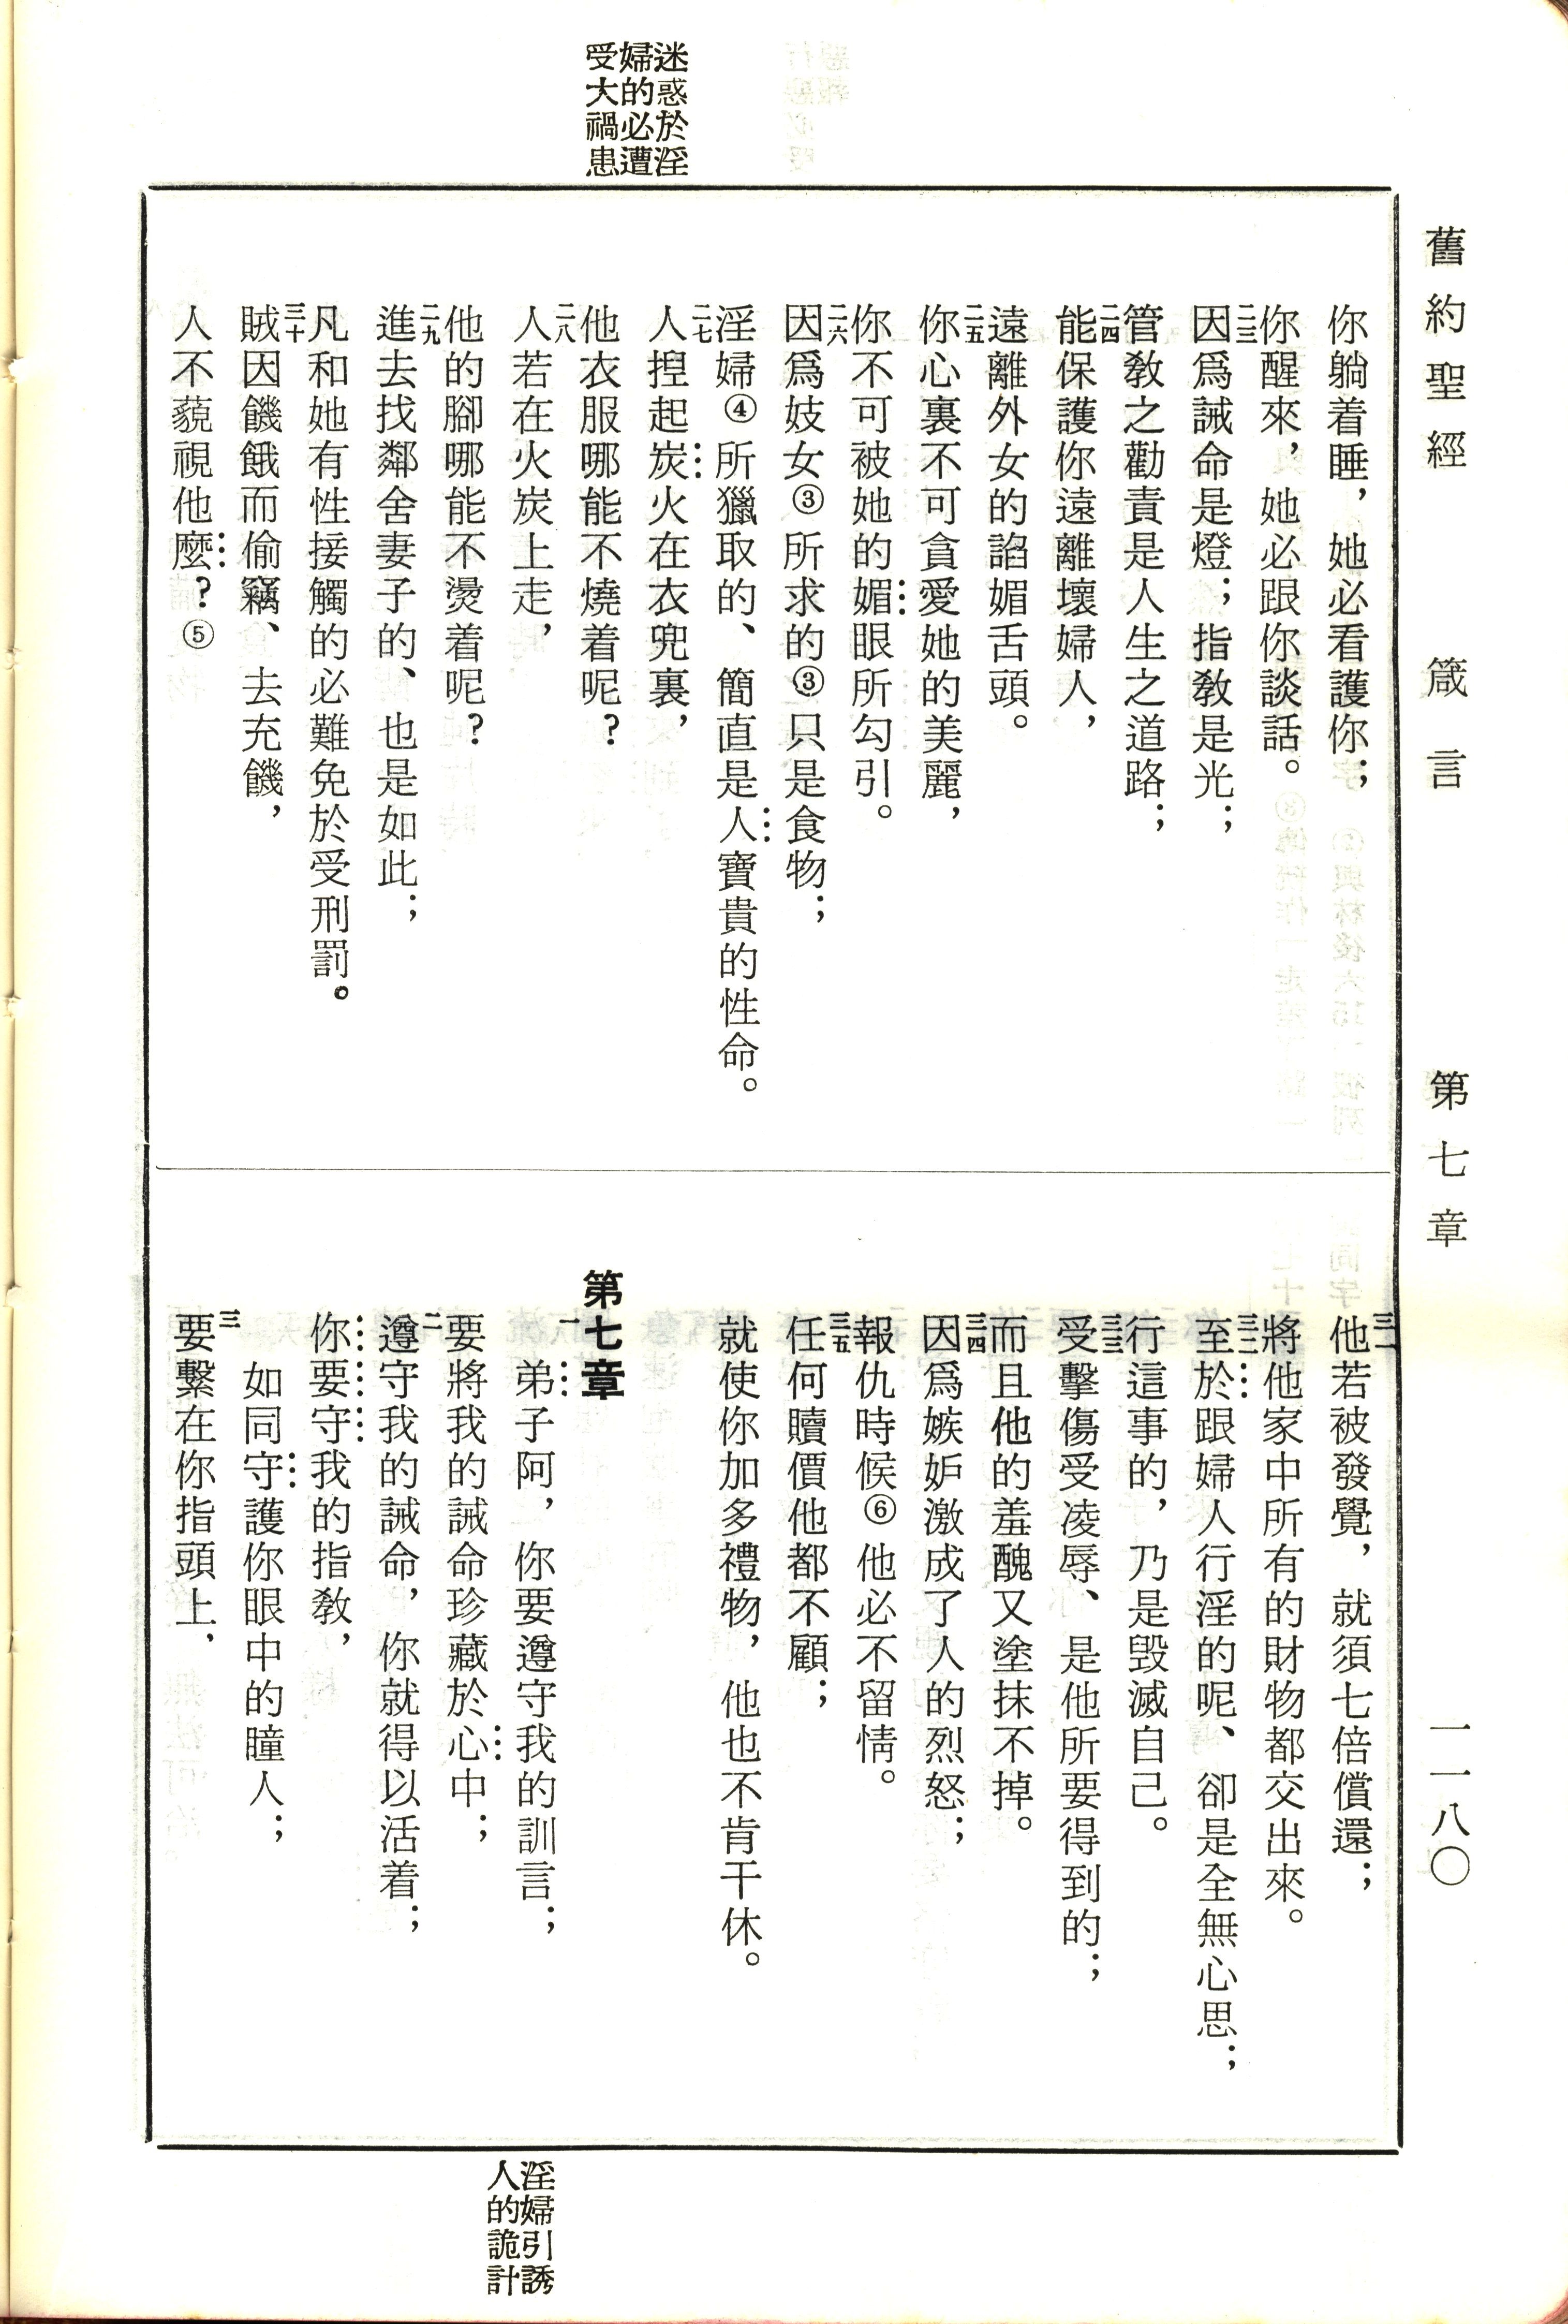 舊約聖經　箴言　第七章　一一八〇
迷惑於淫
婦的必遭
受大禍患
你躺着睡，她必看護你；
你醒來，她必跟你談話。
二三因爲誡命是燈；指教是光；
管教之勸責是人生之道路；
二四能保護你遠離壞婦人，
遠離外女的諂媚舌頭。
二五你心裏不可貪愛她的美麗，
你不可被她的媚眼所勾引。
二六因爲妓女③所求的③只是食物；
淫婦④所獵取的、簡直是人寶貴的性命。
二七人揑起炭火在衣兜裏，
他衣服哪能不燒着呢？
二八人若在火炭上走，
他的腳哪能不燙着呢？
二九進去找鄰舍妻子的、也是如此；
凡和她有性接觸的必難免於受刑罰。
三十賊因饑餓而偷竊、去充饑，
人不藐視他麼？⑤
三一他若被發覺，就須七倍償還；
將他家中所有的財物都交出來。
三二至於跟婦人行淫的呢、卻是全無心思；
行這事的，乃是毀滅自己。
三三受擊傷受凌辱、是他所要得到的；
而且他的羞醜又塗抹不掉。
三四因爲嫉妒激成了人的烈怒；
報仇時候⑥他必不留情。
三五任何贖價他都不顧；
就使你加多禮物，他也不肯干休。
第七章
一弟子阿，你要遵守我的訓言；
要將我的誡命珍藏於心中；
二遵守我的誡命，你就得以活着；
你要守我的指教，
如同守護你眼中的瞳人；
三要繫在你指頭上，
淫婦引誘
人的詭計